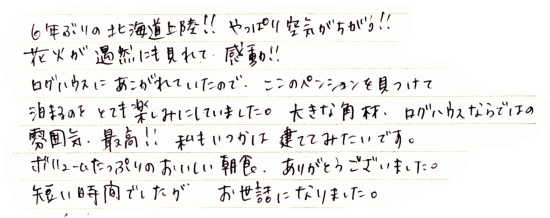 6年ぶりの北海道上陸!! やっぱり空気がちがう!!
花火が偶然にも見れて、感動!!
ログハウスにあこがれていたので、ここのペンションを見つけて
泊まるのをとても楽しみにしていました。大きな角材、ログハウスならではの
雰囲気、最高!! 私もいつかは建ててみたいです。
ボリュームたっぷりのおいしい朝食、ありがとうございました。
短い時間でしたが お世話になりました。